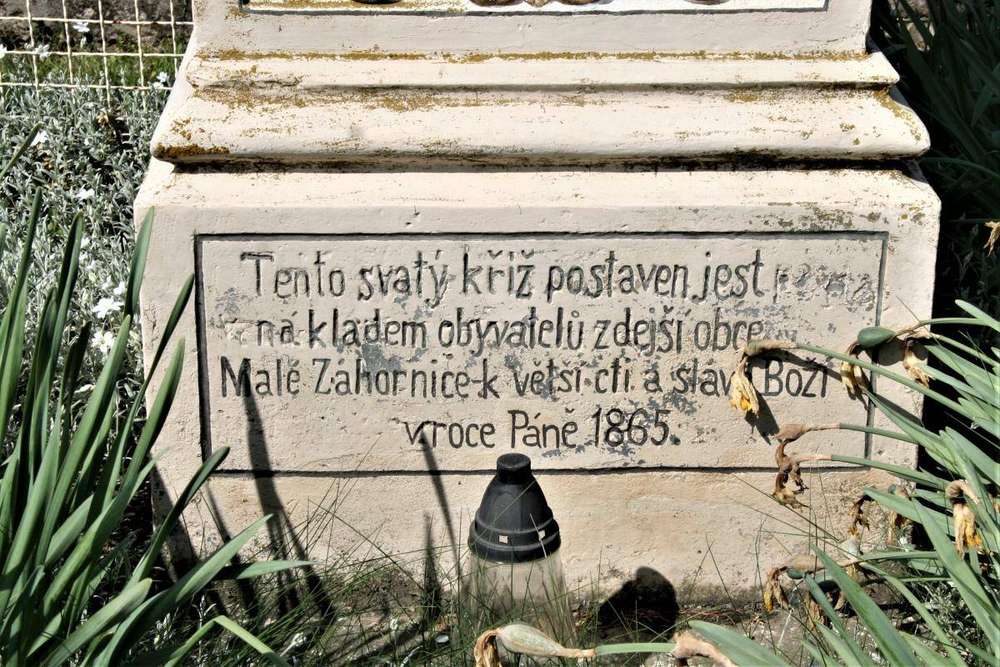 Tento svatý kříž postaven jest
nákladem obyvatelů zdejší obce
Malé Záhornice k větší cti a slávě Boží
v roce Páně 1865.